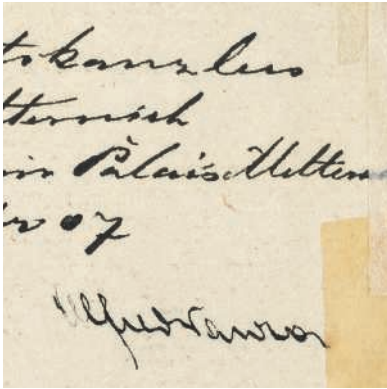 tskanzlers
tternich
im Palais Metter
er 07